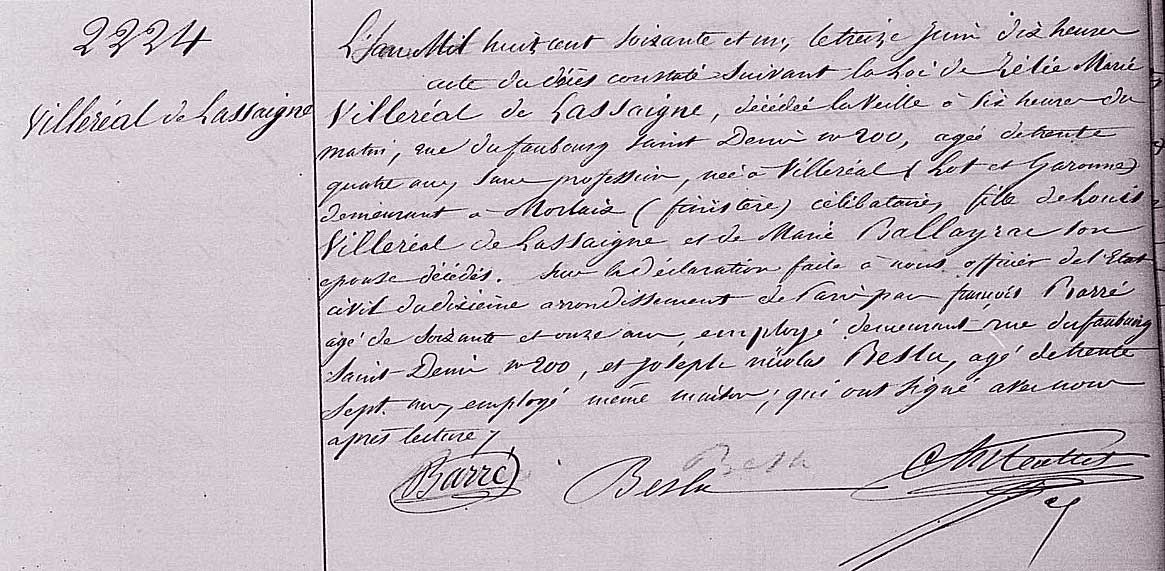 2224
Villeréal de Lassaigne
L'an Mil huit cent soixante et un, le treize Juin dix heures
acte de décès constaté suivant la Loi de Zélée Marie
Villeréal de Lassaigne, décédée la veille à six heures du
matin, rue du faubourg saint Denis n° 200, agée de trente
quatre ans, sans profession, née à Villeréal (Lot et Garonne)
demeurant à Morlaix (finistère) célibataire, fille de Louis
Villeréal de Lassaigne et de Marie Ballayrac son
epouse décédés. Sur la déclaration faite à nous officier de l'Etat
civil du dixième arrondissement de Paris par françois Barré
âgé de soixante et onze ans, employé demeurant rue du faubourg
Saint Denis n° 200, et Joseph nicolas Beslu, agé de trente
sept ans, employé même maison, qui ont signé avec nous
après lecture
Barré Beslu